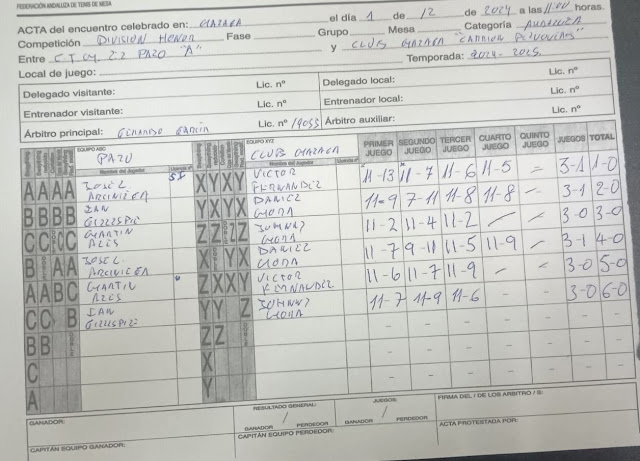 FEDERACIÓN ANDALUZA DE TENIS DE MESA
ACTA del encuentro celebrado en: el día 1 de 12 de 2024 a las 11:00 horas.
Competición DIVISION HONOR Fase Grupo Mesa Categoría ANDALUZA
Entre C.T.M. PAZO "A" y CLUB
Local de juego: Temporada: 2024-2025
Delegado visitante: Lic. nº Delegado local: Lic. nº
Entrenador visitante: Lic. nº Entrenador local: Lic. nº
Árbitro principal: GERARDO GARCÍA Lic. nº Árbitro auxiliar: Lic. nº
EQUIPO ABC EQUIPO XYZ PRIMER JUEGO SEGUNDO JUEGO TERCER JUEGO CUARTO JUEGO QUINTO JUEGO JUEGOS TOTAL
PAZO CLUB
Nombre del Jugador Licencia nº Nombre del Jugador Licencia nº
AAAA JOSE L. XYXY VICTOR FERNANDEZ 11-13 11-7 11-6 11-5 3-1 1-0
BBBB IAN GILLESPIE YXYX DANIEL MORA 11-9 7-11 11-8 11-8 3-1 2-0
CC CC MARTIN ZZ Z JOHNNY MORA 11-2 11-4 11-2 3-0 3-0
B AA JOSE L. X YX DANIEL MORA 11-7 9-11 11-5 11-9 3-1 4-0
AABC MARTIN ZXXY VICTOR FERNANDEZ 11-6 11-7 11-9 3-0 5-0
CC B IAN GILLESPIE YY Z JOHNNY MORA 11-7 11-9 11-6 3-0 6-0
BB ZZ
C X
A Y
GANADOR: RESULTADO GENERAL: / JUEGOS: / FIRMA DEL / DE LOS ARBITRO / S:
GANADOR PERDEDOR GANADOR PERDEDOR
CAPITÁN EQUIPO GANADOR: CAPITÁN EQUIPO PERDEDOR: ACTA PROTESTADA POR: